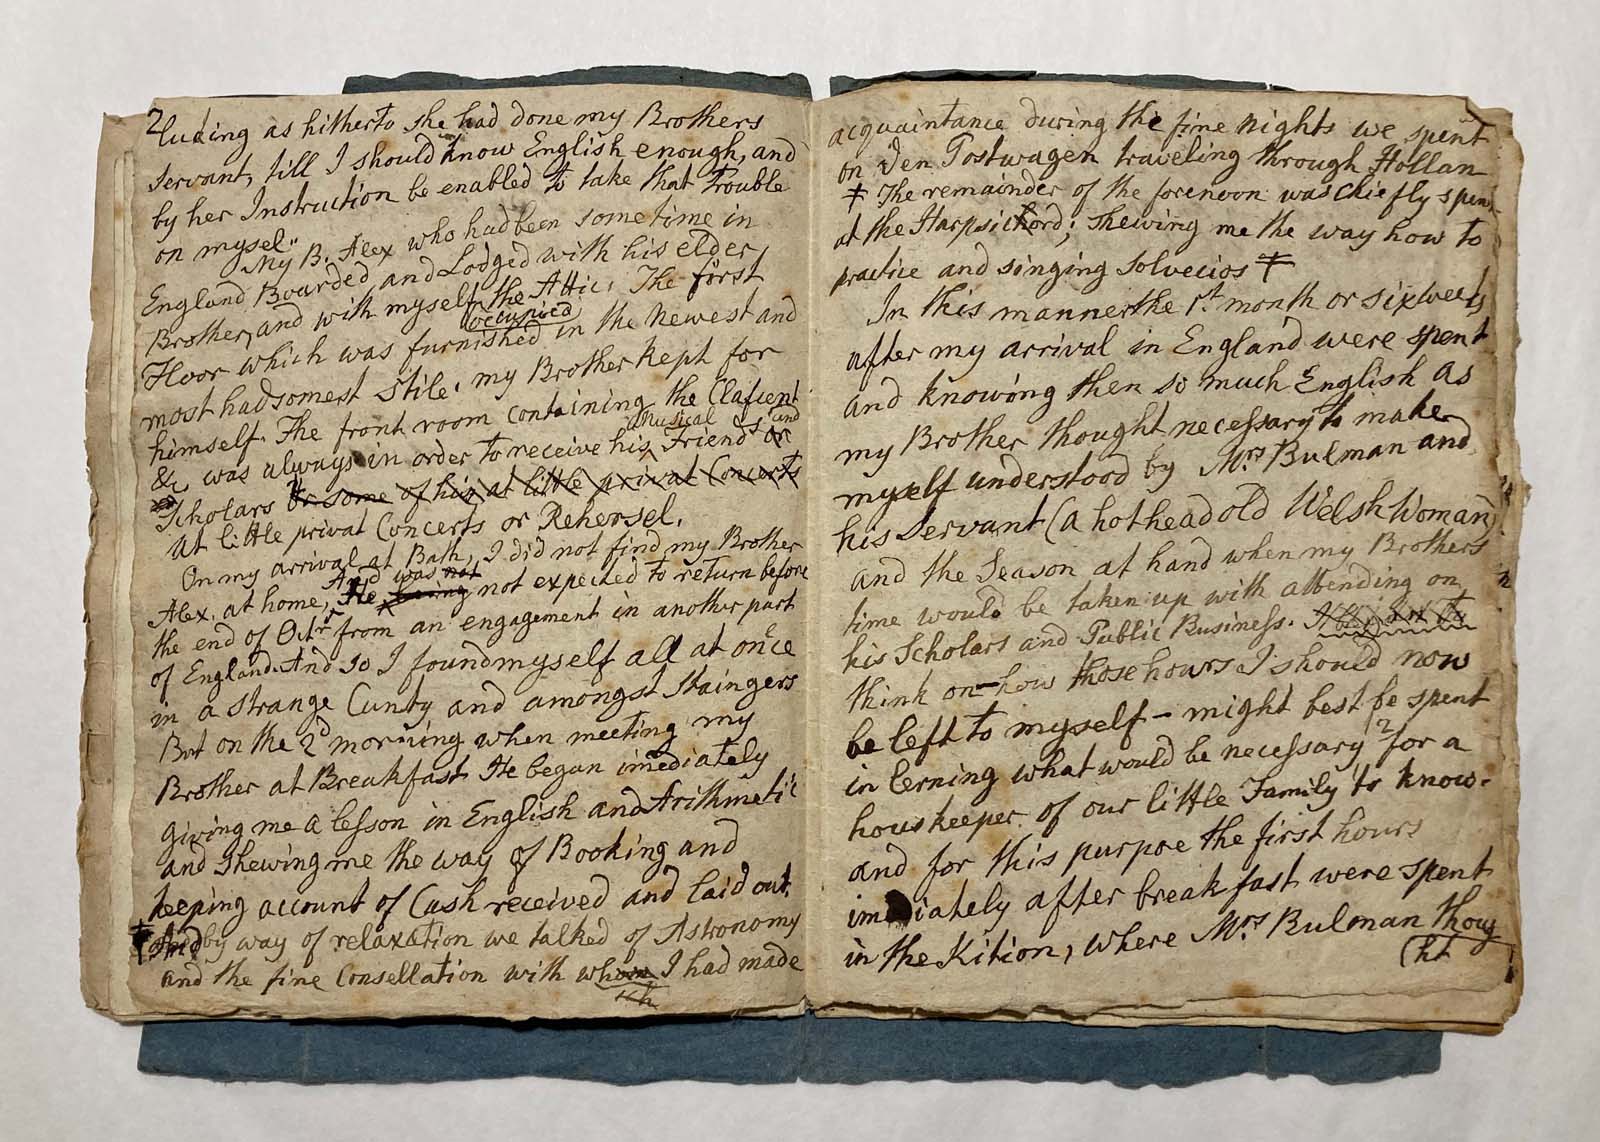 2
luding as hitherto she had done my Brothers
Servant, till I should know English enough, and
by her Instruction be enabled to take that Trouble
on mysel"
My B. Alex who had been some time in
England Boarded and Lodged with his elder
Brother, and with myself the Attic. The first
occupied
Floor which was furnished in the Newest and
most hadsomest Stile. my Brother kept for
himself. The front room containing the Clafient
Musical and
&c, was always in order to receive his Friends or
Scholars or some of his at little privat Concerts
at little privat Concerts or Rehersel.
On my arrival at Bath, I did not find my Brother
And was not
Alex. at home, He being not expected to return before
the end of Octr from an engagement in another part
of England. And so I found myself all at once
in a strange Cunty and amongst Staingers
But on the 2d morning when meeting my
Brother at Breakfast He began imediately
giving me a lesson in English and Arithmetic
and Shewing me the way of Booking and
keeping account of Cash received and laid out.
‡ And by way of relaxation we talked of Astronomy
and the fine Consellation with whom I had made
ich
acquaintance during the fine Nights we spent
on Den Postwagen traveling through Hollan
‡ The remainder of the forenoon was chiefly spent
at the Harpsichord; Shewing me the way how to
practice and singing Solvecios ‡
In this manner the 1st month or six weeks
after my arrival in England were spent
and knowing then so much English as
my Brother thought necessary to make
myself understood by Mrs Bulman and
his Servant (a hothead old Welsh Woman)
and the Season at hand when my Brothers
time would be taken up with attending on
his Scholars and Public Business.
think on how those hours I should now
be left to myself – might best be spent
in lerning what would be necessary 2 for a
houskeeper of our little Family to know.
and for this purpoe the first hours
imediately after breakfast were spent
in the Kition, where Mrs Bulman thoug
(ht